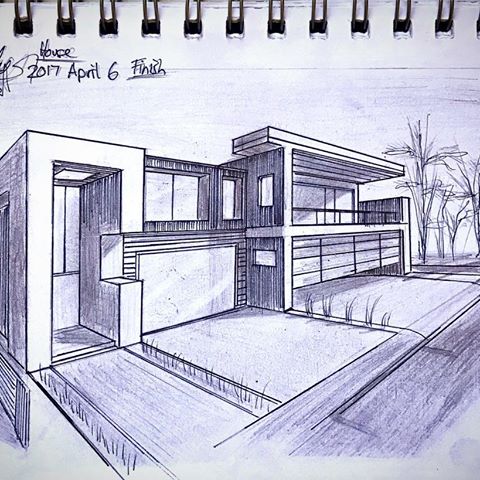 House
2017 April 6 Finish